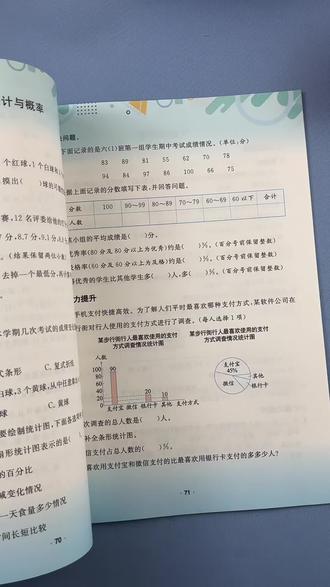 计与概率
个红球,1个白球
摸出( )球的
赛,12名评委给他的
7分,8.7分,9.1分
。(结果保留两位小
去掉一个最低分,再
学期几次考试的成
式条形 C.复式折
白球,3个黄球,从中任意
球 C.黄球
要绘制统计图,下面各
扇形统计图表示的是(
的百分比
减变化情况
一天食量多少情况
时间长短比较
· 70 ·
问题。
下面记录的是六(1)班第一组学生期中考试成绩情况。(单位:分)
83 89 81 55 62 70 78
94 84 97 86 100 66 75
据上面记录的分数填写下表,并回答问题。
分数 100 90~99 80~89 70~79 60~69 60以下 合计
人数
小组的平均成绩是( )分。
优秀率(80分及80分以上为优秀)约是( )%。(百分号前保留整数)
格率(60分及60分以上为及格)约是( )%。(百分号前保留整数)
优秀的学生比其他学生多( )人,多( )%。(百分号前保留整数)
力提升
手机支付快捷高效。为了解人们平时最喜欢哪种支付方式,某软件公司在
行街对行人使用的支付方式进行了调查。(每人选择1项)
某步行街行人最喜欢使用的支付
方式调查情况统计图
某步行街行人最喜欢使用的支付
方式调查情况统计图
人数
100
80
60
40
20
0
90
20
10
支付宝 微信 银行卡 其他 支付方式
支付宝
45%
微信
其他
银行卡
次调查的总人数是( )人。
补全条形统计图。
微信支付占总人数的( )%。
喜欢用支付宝和微信支付的比最喜欢用银行卡支付的多多少人?
· 71 ·